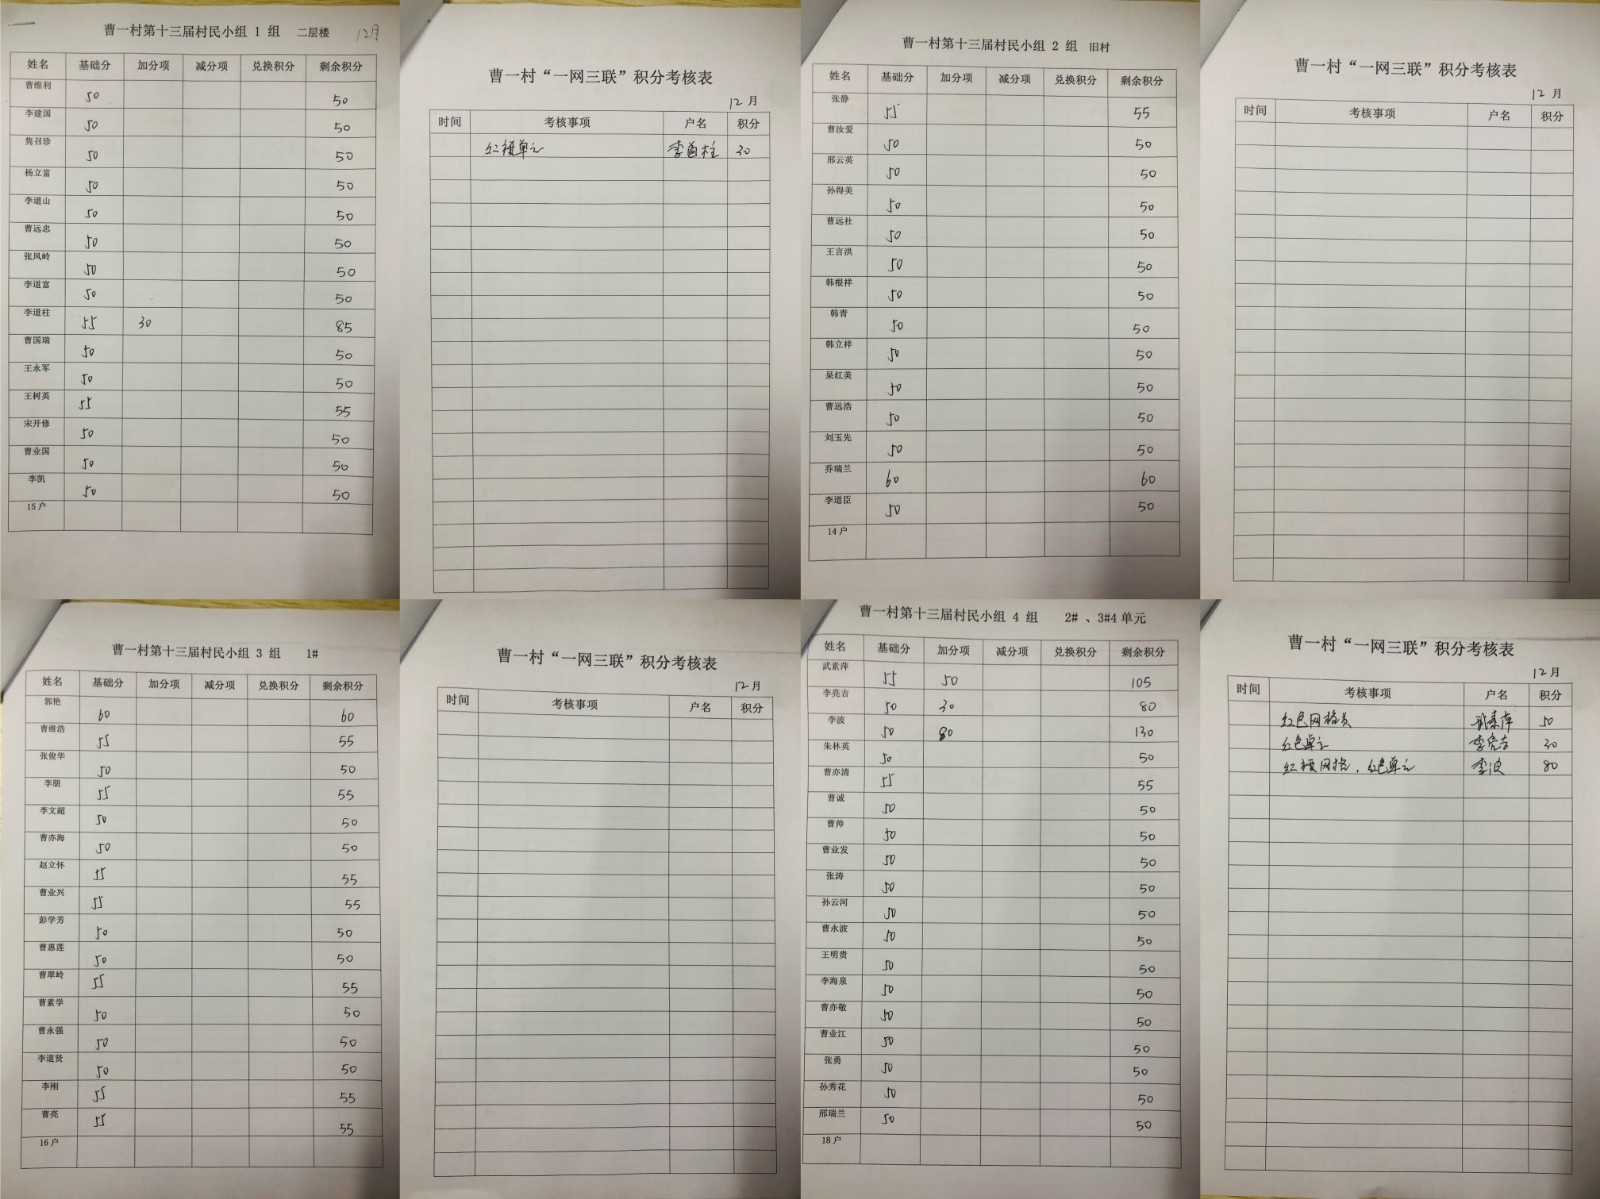 曹一村第十三届村民小组 1 组 二层楼 12月
姓名 基础分 加分项 减分项 兑换积分 剩余积分
曹维利 50 50
李建国 50 50
隽召珍 50 50
杨立富 50 50
李道山 50 50
曹远忠 50 50
张凤岭 50 50
李道富 50 50
李道柱 55 30 85
曹国瑞 50 50
王永军 50 50
王树英 55 55
宋开修 50 50
曹业国 50 50
李凯 50 50
15户
曹一村“一网三联”积分考核表
12月
时间 考核事项 户名 积分
红楼单元 李道柱 30
曹一村第十三届村民小组 2 组 旧村
姓名 基础分 加分项 减分项 兑换积分 剩余积分
张静 55 55
曹汝爱 50 50
邢云英 50 50
孙得美 50 50
曹远社 50 50
王言洪 50 50
韩根祥 50 50
韩青 50 50
韩立祥 50 50
杲红美 50 50
曹远浩 50 50
刘玉先 50 50
乔瑞兰 60 60
李道臣 50 50
14户
曹一村“一网三联”积分考核表
12月
时间 考核事项 户名 积分
曹一村第十三届村民小组 3 组 1#
姓名 基础分 加分项 减分项 兑换积分 剩余积分
郭艳 60 60
曹维浩 55 55
张俊华 50 50
李朋 55 55
李文超 50 50
曹亦海 50 50
赵立怀 55 55
曹业兴 55 55
彭学芳 50 50
曹惠莲 50 50
曹翠岭 55 55
曹素学 50 50
曹永强 50 50
李道贤 50 50
李刚 55 55
曹亮 55 55
16户
曹一村“一网三联”积分考核表
12月
时间 考核事项 户名 积分
曹一村第十三届村民小组 4 组 2#、3#4单元
姓名 基础分 加分项 减分项 兑换积分 剩余积分
武素萍 55 50 105
李亮吉 50 30 80
李波 50 80 130
朱林英 50 50
曹亦清 55 55
曹诚 50 50
曹帅 50 50
曹业发 50 50
张涛 50 50
孙云河 50 50
曹永波 50 50
王明贵 50 50
李海泉 50 50
曹亦敬 50 50
曹业江 50 50
张勇 50 50
孙秀花 50 50
邢瑞兰 50 50
18户
曹一村“一网三联”积分考核表
12月
时间 考核事项 户名 积分
红色网格员 武素萍 50
红色单元 李亮吉 30
红楼网格，红色单元 李波 80